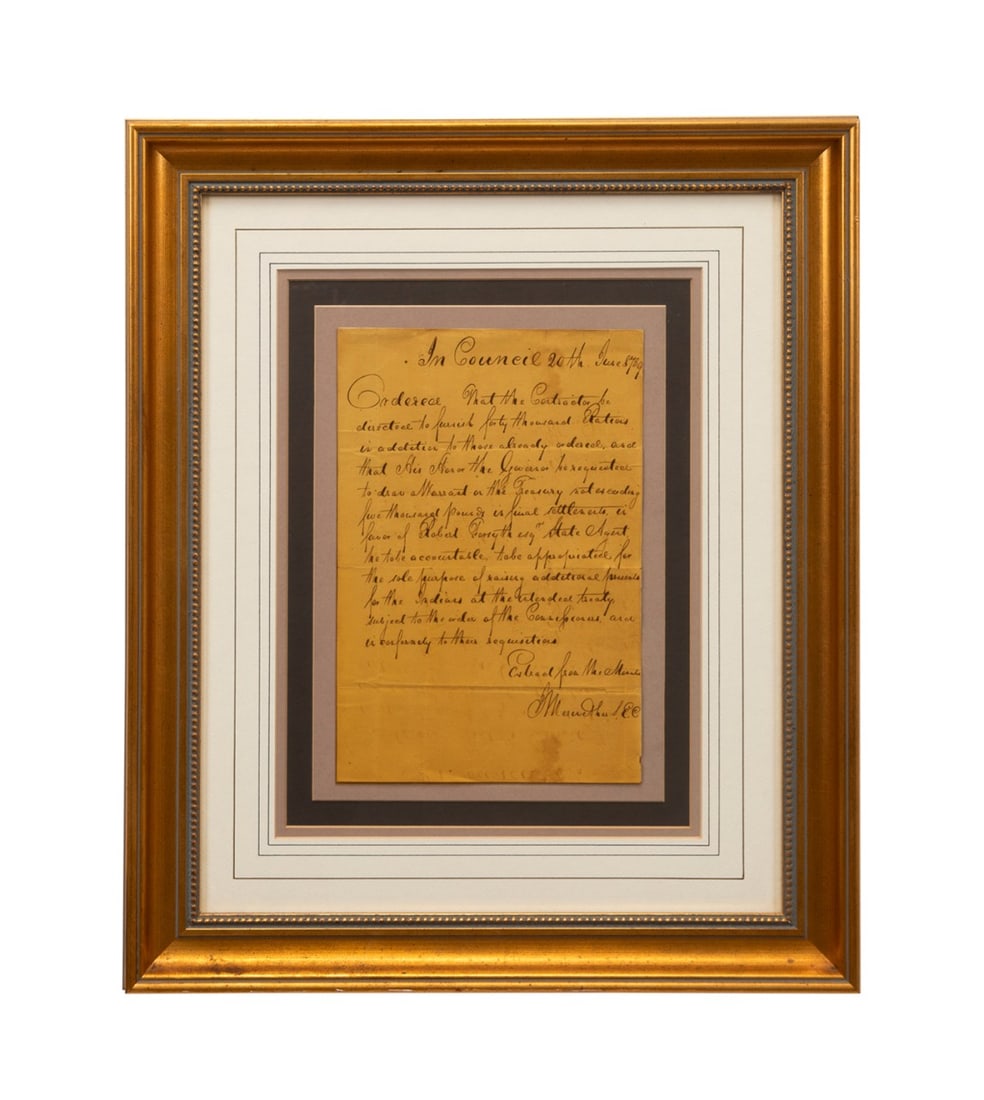 In Council 20th. June 1789
Ordered That the Contractor be
directed to furnish forty thousand Rations
in addition to those already ordered, and
that His Honor the Governor be requested
to draw a Warrant on the Treasury not exceeding
five thousand pounds in final settlements, in
favor of Robert Forsyth esqr. State Agent
he to be accountable, to be appropriated for
the sole purpose of raising additional presents
for the Indians at the intended treaty,
subject to the order of the Commissioners, and
in conformity to their requisitions
Extract from the Minutes